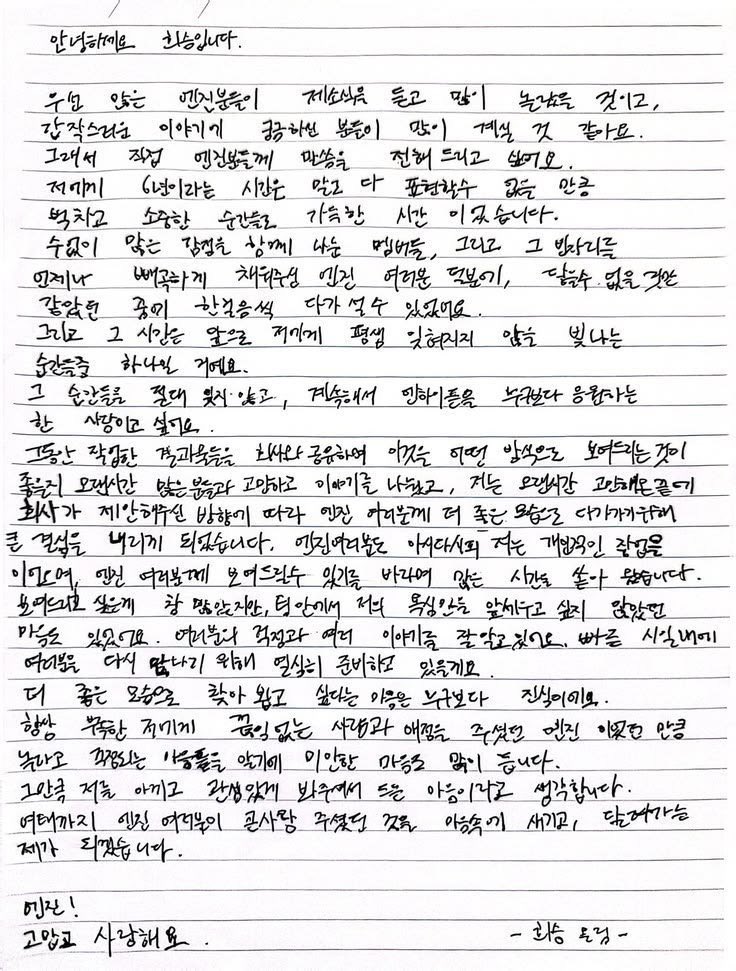 안녕하세요 희승입니다.
우선 많은 엔진분들이 제소식을 듣고 많이 놀랐을 것이고,
갑작스러운 이야기에 궁금하신 분들이 많이 계실 것 같아요.
그래서 직접 엔진분들께 말씀을 전해 드리고 싶어요.
저에게 6년이라는 시간은 말로 다 표현할수 없을 만큼
벅차고 소중한 순간들로 가득한 시간 이었습니다.
수없이 많은 감정을 함께 나눈 멤버들, 그리고 그 빈자리를
언제나 빼곡하게 채워주신 엔진 여러분 덕분에, 닿을수 없을 것만
같았던 꿈에 한걸음씩 다가 설 수 있었어요.
그리고 그 시간은 앞으로 저에게 평생 잊혀지지 않을 빛나는
순간들중 하나일 거예요.
그 순간들을 절대 잊지 않고, 계속해서 엔하이픈을 누구보다 응원하는
한 사람이고 싶어요.
그동안 작업한 결과물들을 회사와 공유하며 이것을 어떤 방식으로 보여드리는 것이
좋을지 오랜시간 많은 분들과 고민하고 이야기를 나눴고, 저는 오랜시간 고민해온 끝에
회사가 제안해주신 방향에 따라 엔진 여러분께 더 좋은 모습으로 다가가기 위해
큰 결심을 내리게 되었습니다. 엔진여러분도 아시다시피 저는 개인적인 작업을
이어오며, 엔진 여러분께 보여드릴수 있기를 바라며 많은 시간을 쏟아 왔습니다.
보여드리고 싶은게 참 많았지만, 팀 안에서 저의 욕심만을 앞세우고 싶지 않았던
마음도 있었어요. 여러분의 걱정과 여러 이야기를 잘 알고 있어요. 빠른 시일내에
여러분을 다시 만나기 위해 열심히 준비하고 있을게요.
더 좋은 모습으로 찾아 뵙고 싶다는 마음은 누구보다 진심이에요.
항상 부족한 저에게 끊임없는 사랑과 애정을 주셨던 엔진 이었던 만큼
놀라고 걱정되는 마음들을 알기에 미안한 마음도 많이 듭니다.
그만큼 저를 아끼고 관심있게 봐주셔서 드는 마음이라고 생각합니다.
여태까지 엔진 여러분이 큰사랑 주셨던 것을 마음속에 새기고, 달려가는
제가 되겠습니다.
엔진!
고맙고 사랑해요.
- 희승 드림 -